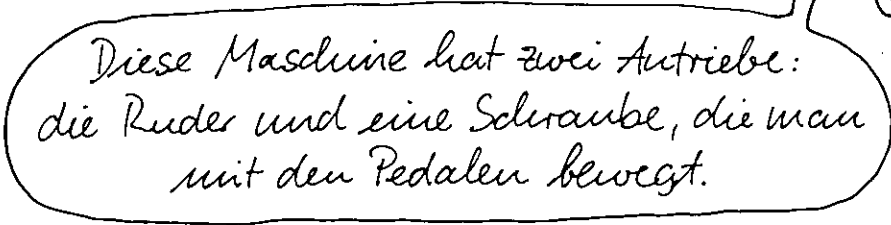 Diese Maschine hat zwei Antriebe:
die Ruder und eine Schraube, die man
mit den Pedalen bewegt.